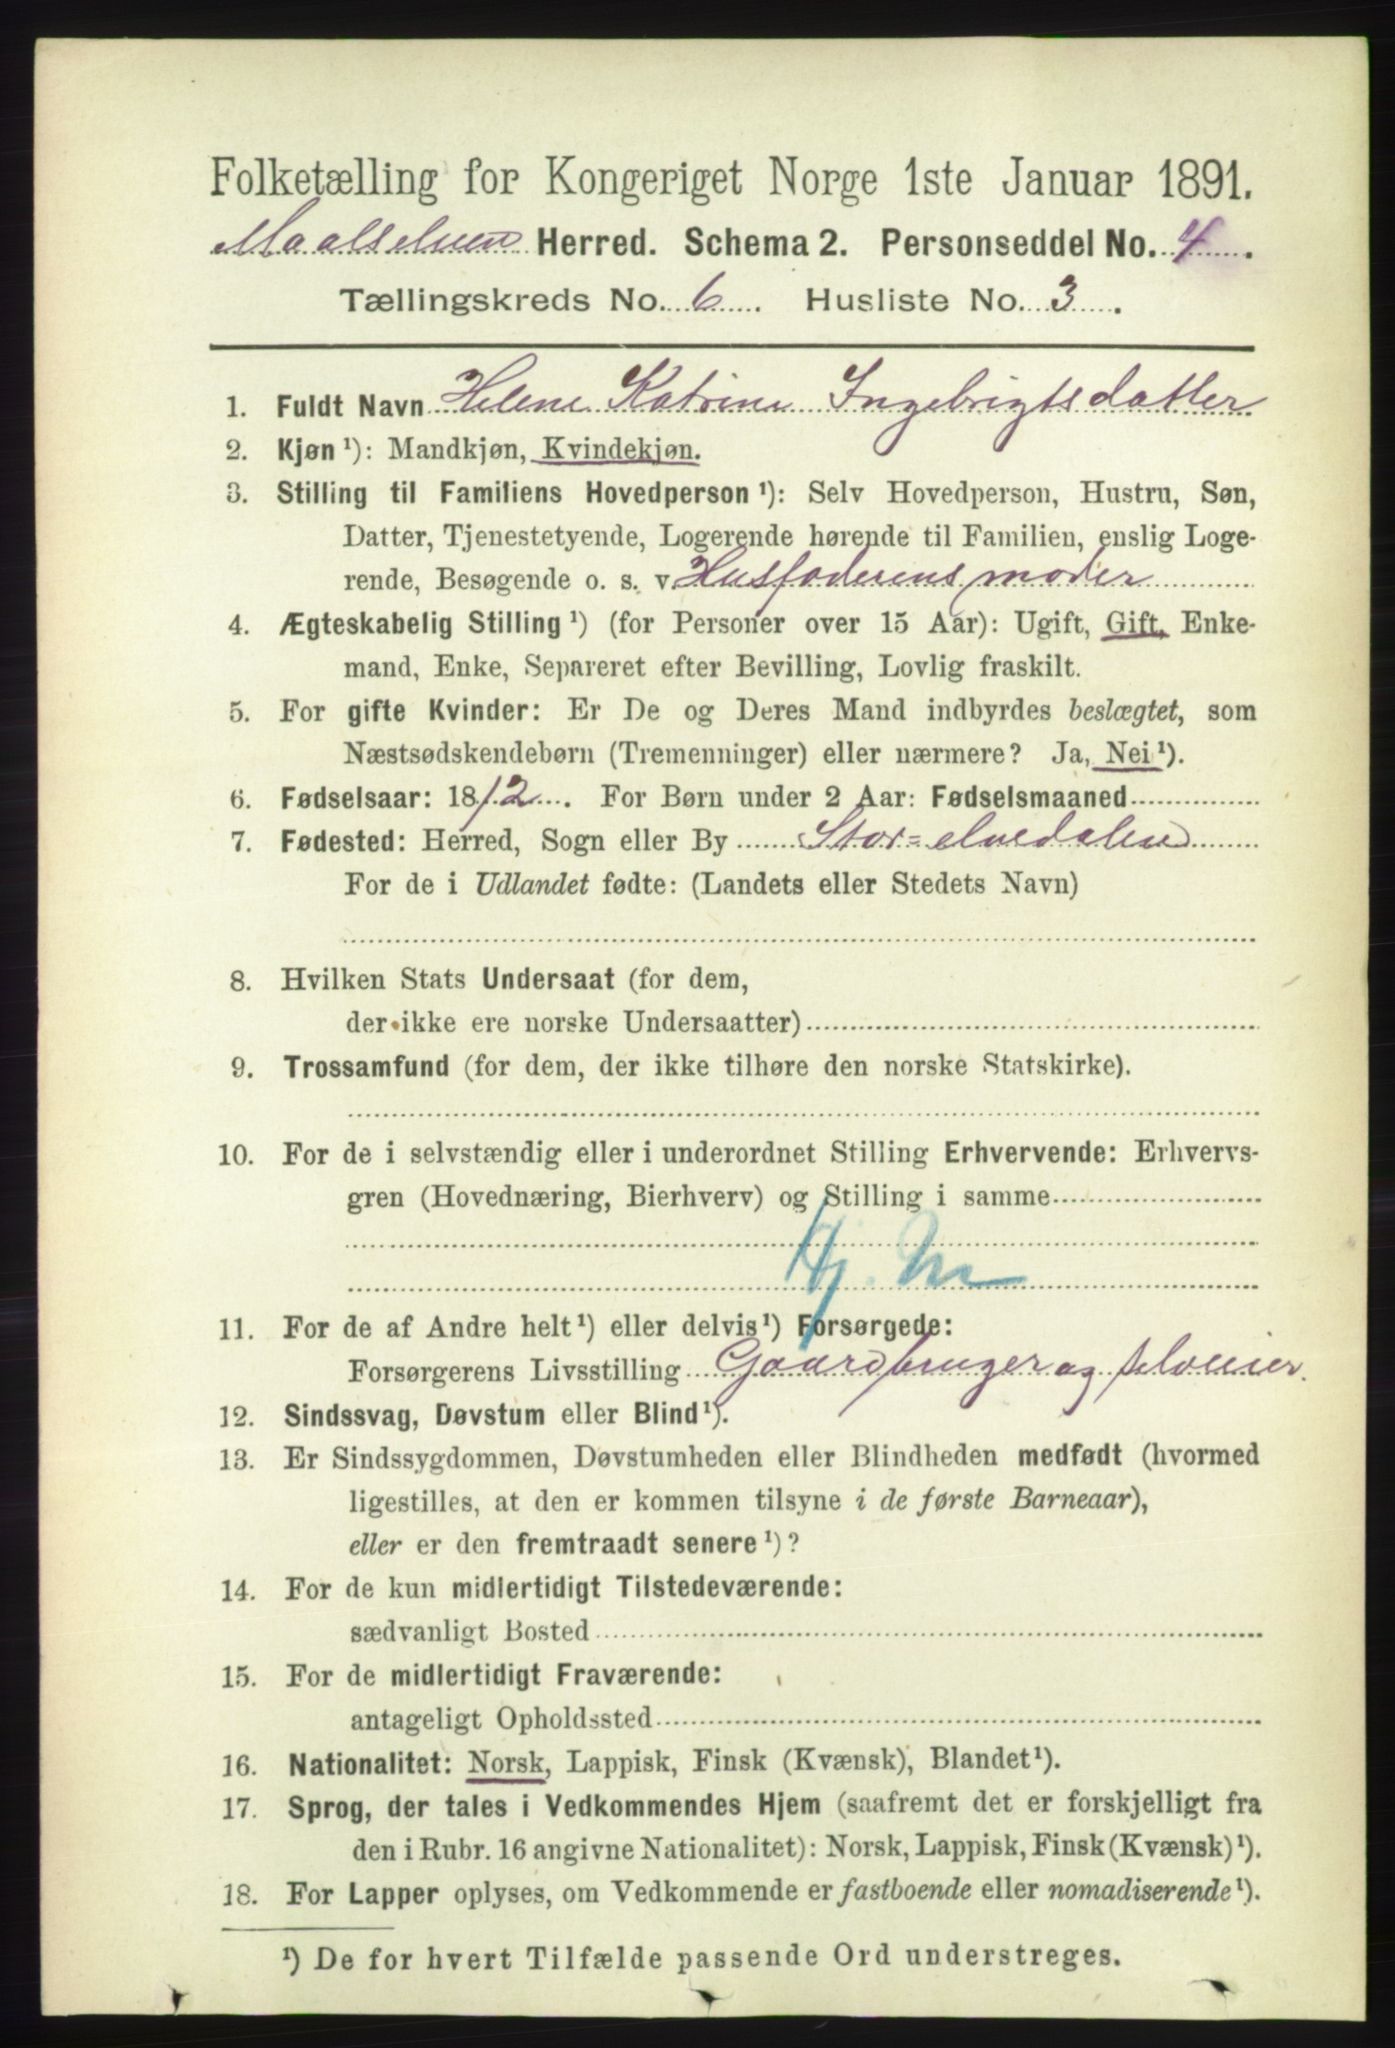 Folketælling for Kongeriget Norge 1ste Januar 1891.
Maalselven Herred. Schema 2. Personseddel No. 4.
Tællingskreds No. 6. Husliste No. 3.
1. Fuldt Navn Helene Katrine Ingebrigtsdatter
2. Kjøn ¹): Mandkjøn, Kvindekjøn.
3. Stilling til Familiens Hovedperson ¹): Selv Hovedperson, Hustru, Søn,
Datter, Tjenestetyende, Logerende hørende til Familien, enslig Loge-
rende, Besøgende o. s. v. Husfaderens moder
4. Ægteskabelig Stilling ¹) (for Personer over 15 Aar): Ugift, Gift, Enke-
mand, Enke, Separeret efter Bevilling, Lovlig fraskilt.
5. For gifte Kvinder: Er De og Deres Mand indbyrdes beslægtet, som
Næstsødskendebørn (Tremenninger) eller nærmere? Ja, Nei ¹).
6. Fødselsaar: 1812. For Børn under 2 Aar: Fødselsmaaned
7. Fødested: Herred, Sogn eller By Stor=elvedalen
For de i Udlandet fødte: (Landets eller Stedets Navn)
8. Hvilken Stats Undersaat (for dem,
der ikke ere norske Undersaatter)
9. Trossamfund (for dem, der ikke tilhøre den norske Statskirke).
10. For de i selvstændig eller i underordnet Stilling Erhvervende: Erhvervs-
gren (Hovednæring, Bierhverv) og Stilling i samme
11. For de af Andre helt ¹) eller delvis ¹) Forsørgede:
Forsørgerens Livsstilling Gaardbruger og selveier.
12. Sindssvag, Døvstum eller Blind ¹).
13. Er Sindssygdommen, Døvstumheden eller Blindheden medfødt (hvormed
ligestilles, at den er kommen tilsyne i de første Barneaar),
eller er den fremtraadt senere ¹)?
14. For de kun midlertidigt Tilstedeværende:
sædvanligt Bosted
15. For de midlertidigt Fraværende:
antageligt Opholdssted
16. Nationalitet: Norsk, Lappisk, Finsk (Kvænsk), Blandet ¹).
17. Sprog, der tales i Vedkommendes Hjem (saafremt det er forskjelligt fra
den i Rubr. 16 angivne Nationalitet): Norsk, Lappisk, Finsk (Kvænsk) ¹).
18. For Lapper oplyses, om Vedkommende er fastboende eller nomadiserende ¹).
¹) De for hvert Tilfælde passende Ord understreges.